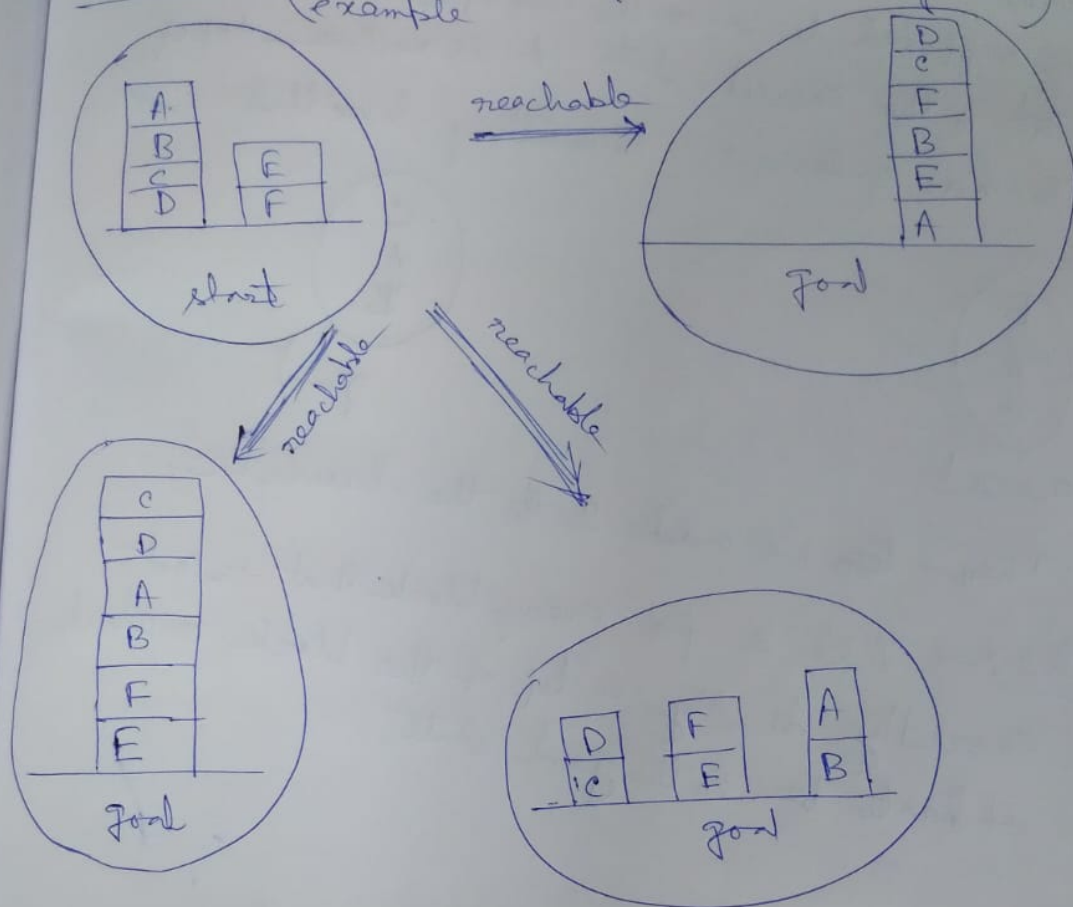 (example
)
A
B
C
D
E
F
start
reachable
D
C
F
B
E
A
goal
reachable
reachable
C
D
A
B
F
E
goal
D
C
F
E
A
B
goal